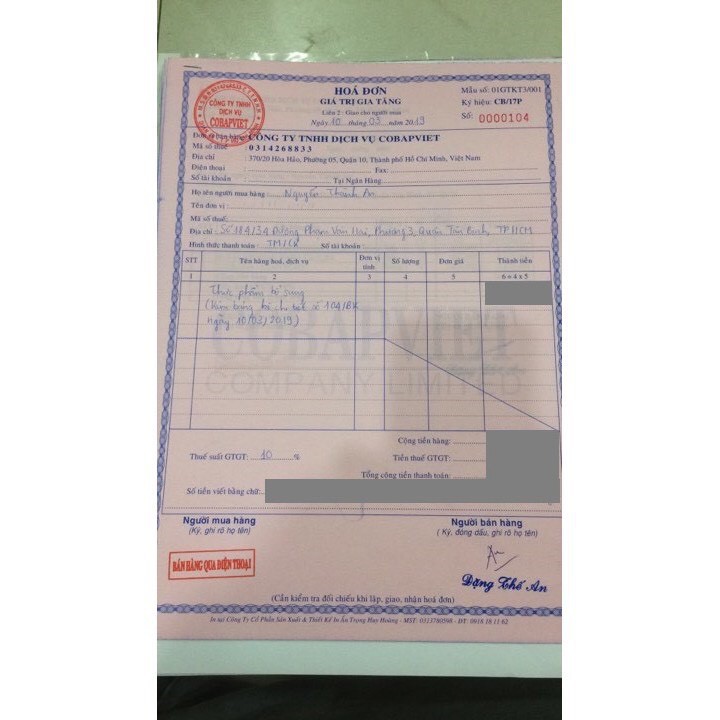 HOÁ ĐƠN
GIÁ TRỊ GIA TĂNG
Liên 2: Giao cho người mua
Ngày 10 tháng 03 năm 2019
Mẫu số: 01GTKT3/001
Ký hiệu: CB/17P
Số: 0000104
CÔNG TY TNHH
DỊCH VỤ
COBAPVIET
Đơn vị bán hàng: CÔNG TY TNHH DỊCH VỤ COBAPVIET
Mã số thuế : 0314268833
Địa chỉ : 370/20 Hòa Hảo, Phường 05, Quận 10, Thành phố Hồ Chí Minh, Việt Nam
Điện thoại : Fax:
Số tài khoản : Tại Ngân Hàng
Họ tên người mua hàng : Nguyễn Thành An
Tên đơn vị :
Mã số thuế:
Địa chỉ : Số 184/34 Đường Phạm Văn Hai, Phường 3, Quận Tân Bình, TPHCM
Hình thức thanh toán : TM/CK Số tài khoản :
STT Tên hàng hoá, dịch vụ Đơn vị tính Số lượng Đơn giá Thành tiền
1 2 3 4 5 6 = 4 x 5
Thực phẩm bổ sung
(Kèm bảng kê chi tiết số 104/BK
ngày 10/03/2019)
COBAPVIET
COMPANY LIMITED
Cộng tiền hàng:
Thuế suất GTGT: 10 % Tiền thuế GTGT:
Tổng cộng tiền thanh toán:
Số tiền viết bằng chữ:
Người mua hàng
(Ký, ghi rõ họ tên)
Người bán hàng
( Ký, đóng dấu, ghi rõ họ tên)
BÁN HÀNG QUA ĐIỆN THOẠI
An
Đặng Thế An
(Cần kiểm tra đối chiếu khi lập, giao, nhận hoá đơn)
In tại Công Ty Cổ Phần Sản Xuất & Thiết Kế In Ấn Trọng Huy Hoàng - MST: 0313780598 - ĐT: 0918 18 11 62